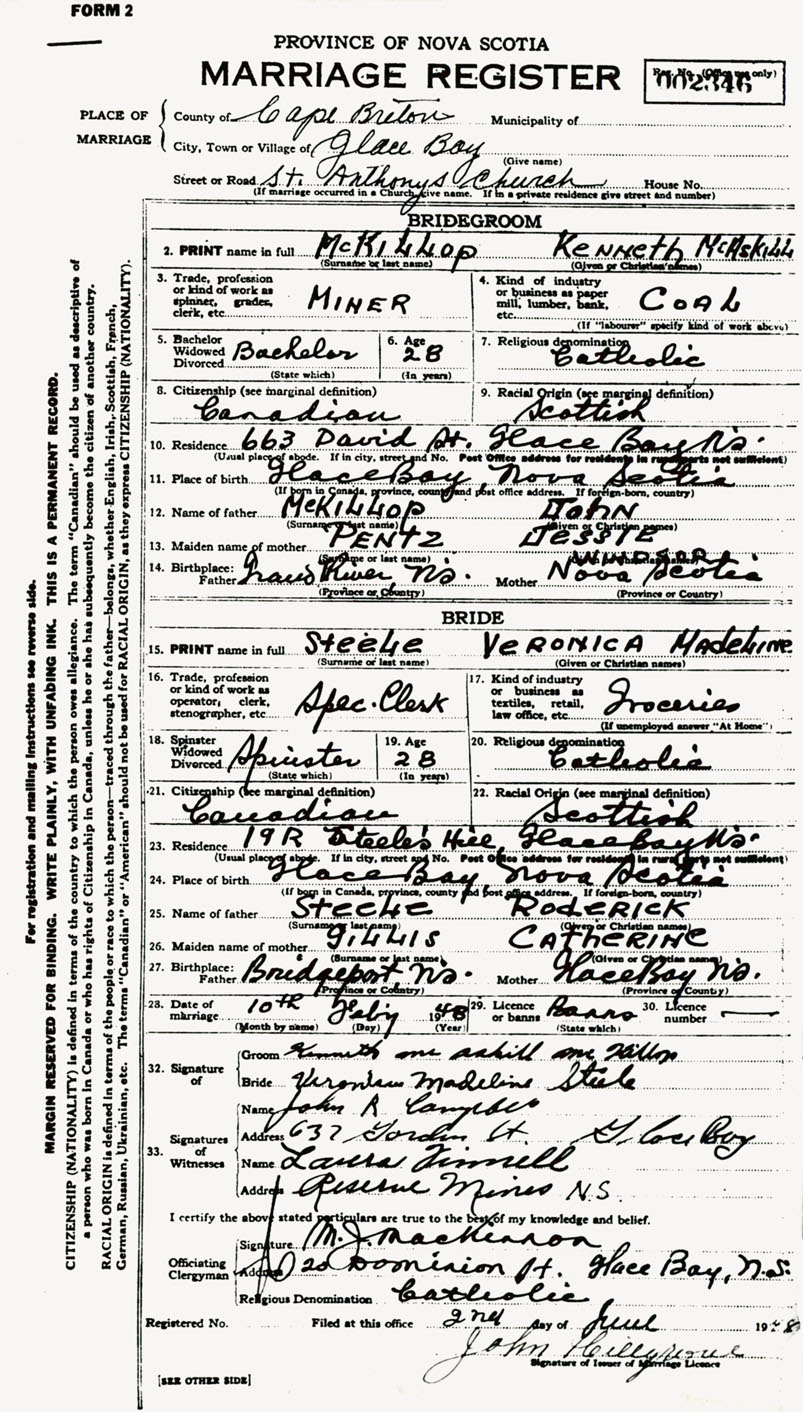 FORM 2
PROVINCE OF NOVA SCOTIA
MARRIAGE REGISTER
Reg. No. (Office use only)
002346
PLACE OF MARRIAGE
County of Cape Breton Municipality of
City, Town or Village of Glace Bay
(Give name)
Street or Road St. Anthonys Church House No.
(If marriage occurred in a Church give name. If in a private residence give street and number)
BRIDEGROOM
2. PRINT name in full McKillop Kenneth McAskill
(Surname or last name) (Given or Christian names)
3. Trade, profession or kind of work as spinner, grader, clerk, etc. MINER
4. Kind of industry or business as paper mill, lumber, bank, etc. COAL
(If "labourer" specify kind of work above)
5. Bachelor Widowed Divorced Bachelor
(State which)
6. Age 28
(In years)
7. Religious denomination Catholic
8. Citizenship (see marginal definition) Canadian
9. Racial Origin (see marginal definition) Scottish
10. Residence 663 David St. Glace Bay N.S.
(Usual place of abode. If in city, street and No. Post Office address for residents in rural parts not sufficient)
11. Place of birth Glace Bay, Nova Scotia
(If born in Canada, province, county and post office address. If foreign-born, country)
12. Name of father McKillop John
(Surname or last name) (Given or Christian names)
13. Maiden name of mother PENTZ JESSIE
(Surname or last name) (Given or Christian names)
14. Birthplace: Father River, N.S. Mother WINDSOR Nova Scotia
(Province or Country) (Province or Country)
BRIDE
15. PRINT name in full Steele Veronica Madeline
(Surname or last name) (Given or Christian names)
16. Trade, profession or kind of work as operator, clerk, stenographer, etc. Spec. Clerk
17. Kind of industry or business as textiles, retail, law office, etc. Groceries
(If unemployed answer "At Home")
18. Spinster Widowed Divorced Spinster
(State which)
19. Age 28
(In years)
20. Religious denomination Catholic
21. Citizenship (see marginal definition) Canadian
22. Racial Origin (see marginal definition) Scottish
23. Residence 19R Steele's Hill, Glace Bay N.S.
(Usual place of abode. If in city, street and No. Post Office address for residents in rural parts not sufficient)
24. Place of birth Glace Bay, Nova Scotia
(If born in Canada, province, county and post office address. If foreign-born, country)
25. Name of father Steele Roderick
(Surname or last name) (Given or Christian names)
26. Maiden name of mother Gillis Catherine
(Surname or last name) (Given or Christian names)
27. Birthplace: Father Bridgeport, N.S. Mother Glace Bay N.S.
(Province or Country) (Province or County)
28. Date of marriage 10th Feby 1948
(Month by name) (Day) (Year)
29. Licence or banns Banns
(State which)
30. Licence number —
32. Signature of
Groom Kenneth Mc Askill Mc Killop
Bride Veronica Madeline Steele
33. Signatures of Witnesses
Name John R Campbell
Address 637 Gordon St. Glace Bay
Name Laura Finnell
Address Reserve Mines N.S.
I certify the above stated particulars are true to the best of my knowledge and belief.
Officiating Clergyman
Signature M. J. MacKinnon
Address 20 Dominion St. Glace Bay, N.S.
Religious Denomination Catholic
Registered No. Filed at this office 2nd day of June 1948
John
Signature of Issuer of Marriage Licence
[SEE OTHER SIDE]
For registration and mailing instructions see reverse side.
MARGIN RESERVED FOR BINDING. WRITE PLAINLY, WITH UNFADING INK. THIS IS A PERMANENT RECORD.
CITIZENSHIP (NATIONALITY) is defined in terms of the country to which the person owes allegiance. The term "Canadian" should be used as descriptive of
a person who was born in Canada or who has rights of Citizenship in Canada, unless he or she has subsequently become the citizen of another country.
RACIAL ORIGIN is defined in terms of the people or race to which the person—traced through the father—belongs, whether English, Irish, Scottish, French,
German, Russian, Ukrainian, etc. The terms "Canadian" or "American" should not be used for RACIAL ORIGIN, as they express CITIZENSHIP (NATIONALITY).